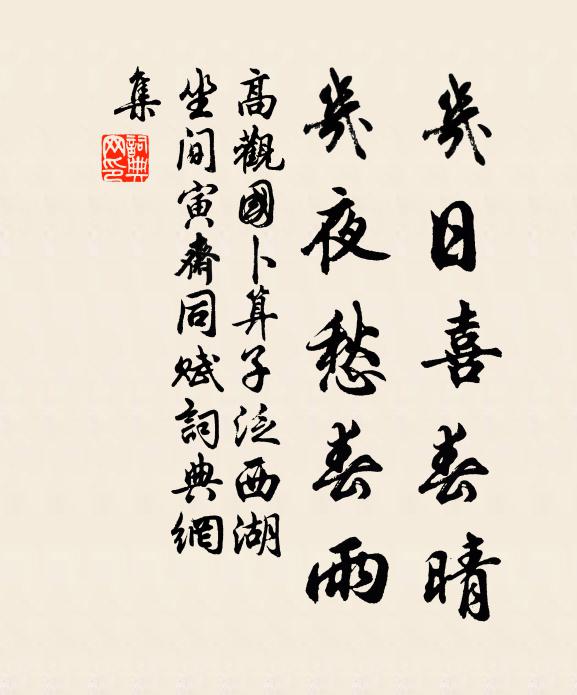 幾日喜春晴
幾夜愁春雨
高觀國卜算子泛西湖
坐間寅齋同賦詞典網
集
詞典
网印